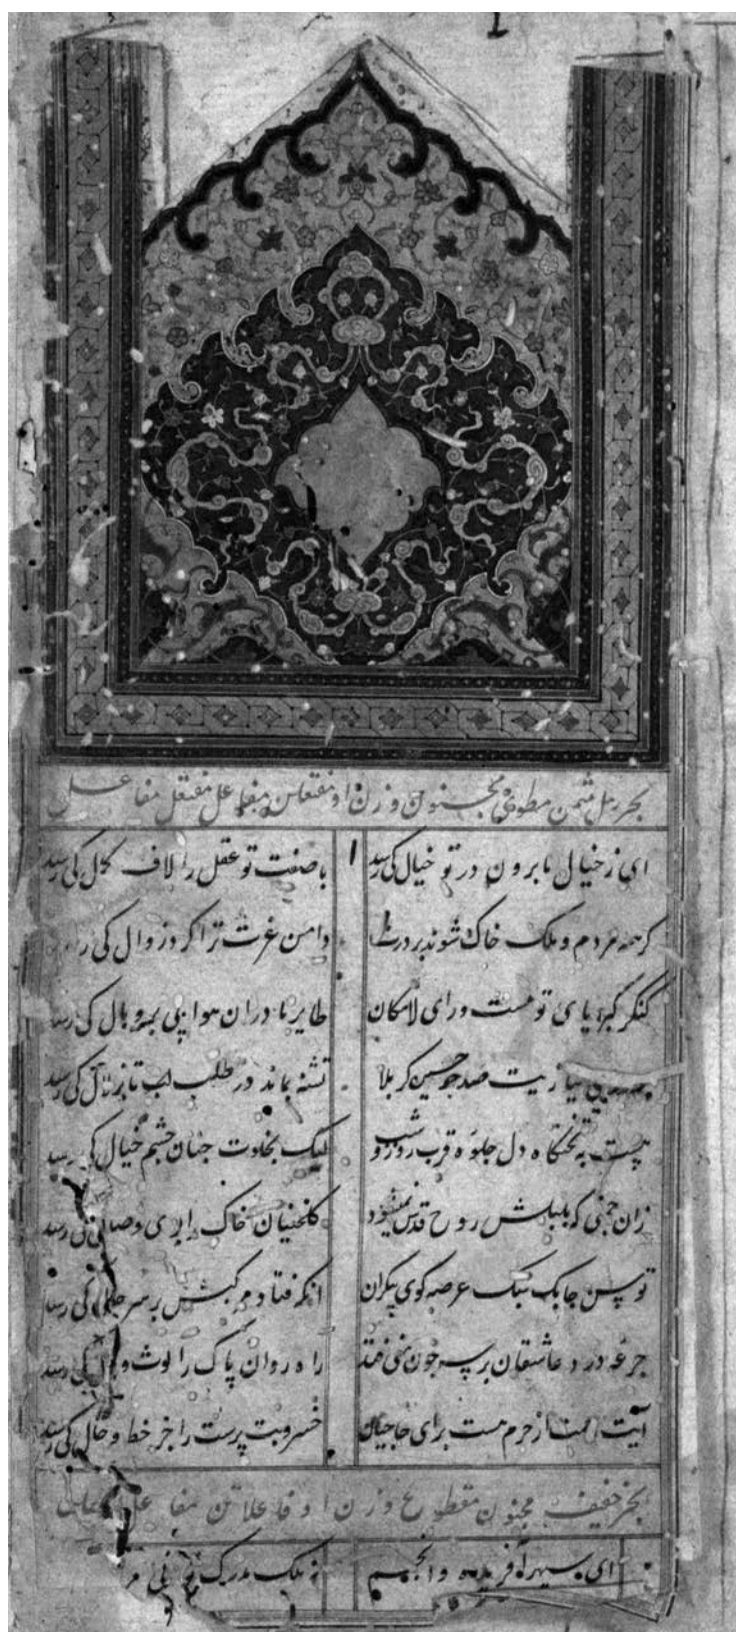 بحر رمل مثمن مطوی و مخبون وزن او مفتعلن مفاعل مفتعل مفاعلن
ای ز خیال ما برون در تو خیال کی رسد
با صفت تو عقل را لاف کمال کی رسد
گر همه مردم و ملک خاک شوند بر درت
دامن عزت ترا گرد زوال کی رسد
کنگر کبریای تو هست ورای لامکان
طایر ما دران هوا بی پر و بال کی رسد
بی نیازیت صد چو حسین کربلا
تشنه بماند در طلب لب تا بزلال کی رسد
هست به تختگاه دل جلوه قرب روز و شب
لیک بخلوت جنان چشم خیال کی رسد
زان چمنی که بلبلش روح قدس نمیشود
گلخنیان خاک را بوی وصال کی رسد
توسن چابک سبک عرصه کوی
انکه فتاد مرکبش بر سر کی رسد
جرعه درد عاشقان بر سر چون
راه روان پاک را لوث و کی رسد
آیت از حرم هست برای حاجیان
خسرو بت پرست را جز خط و خال کی رسد
بحر خفیف مخبون مقطوع وزن او فاعلاتن مفاعلن
ای سپهر آفریده و انجم
نه ملک مدرک نی